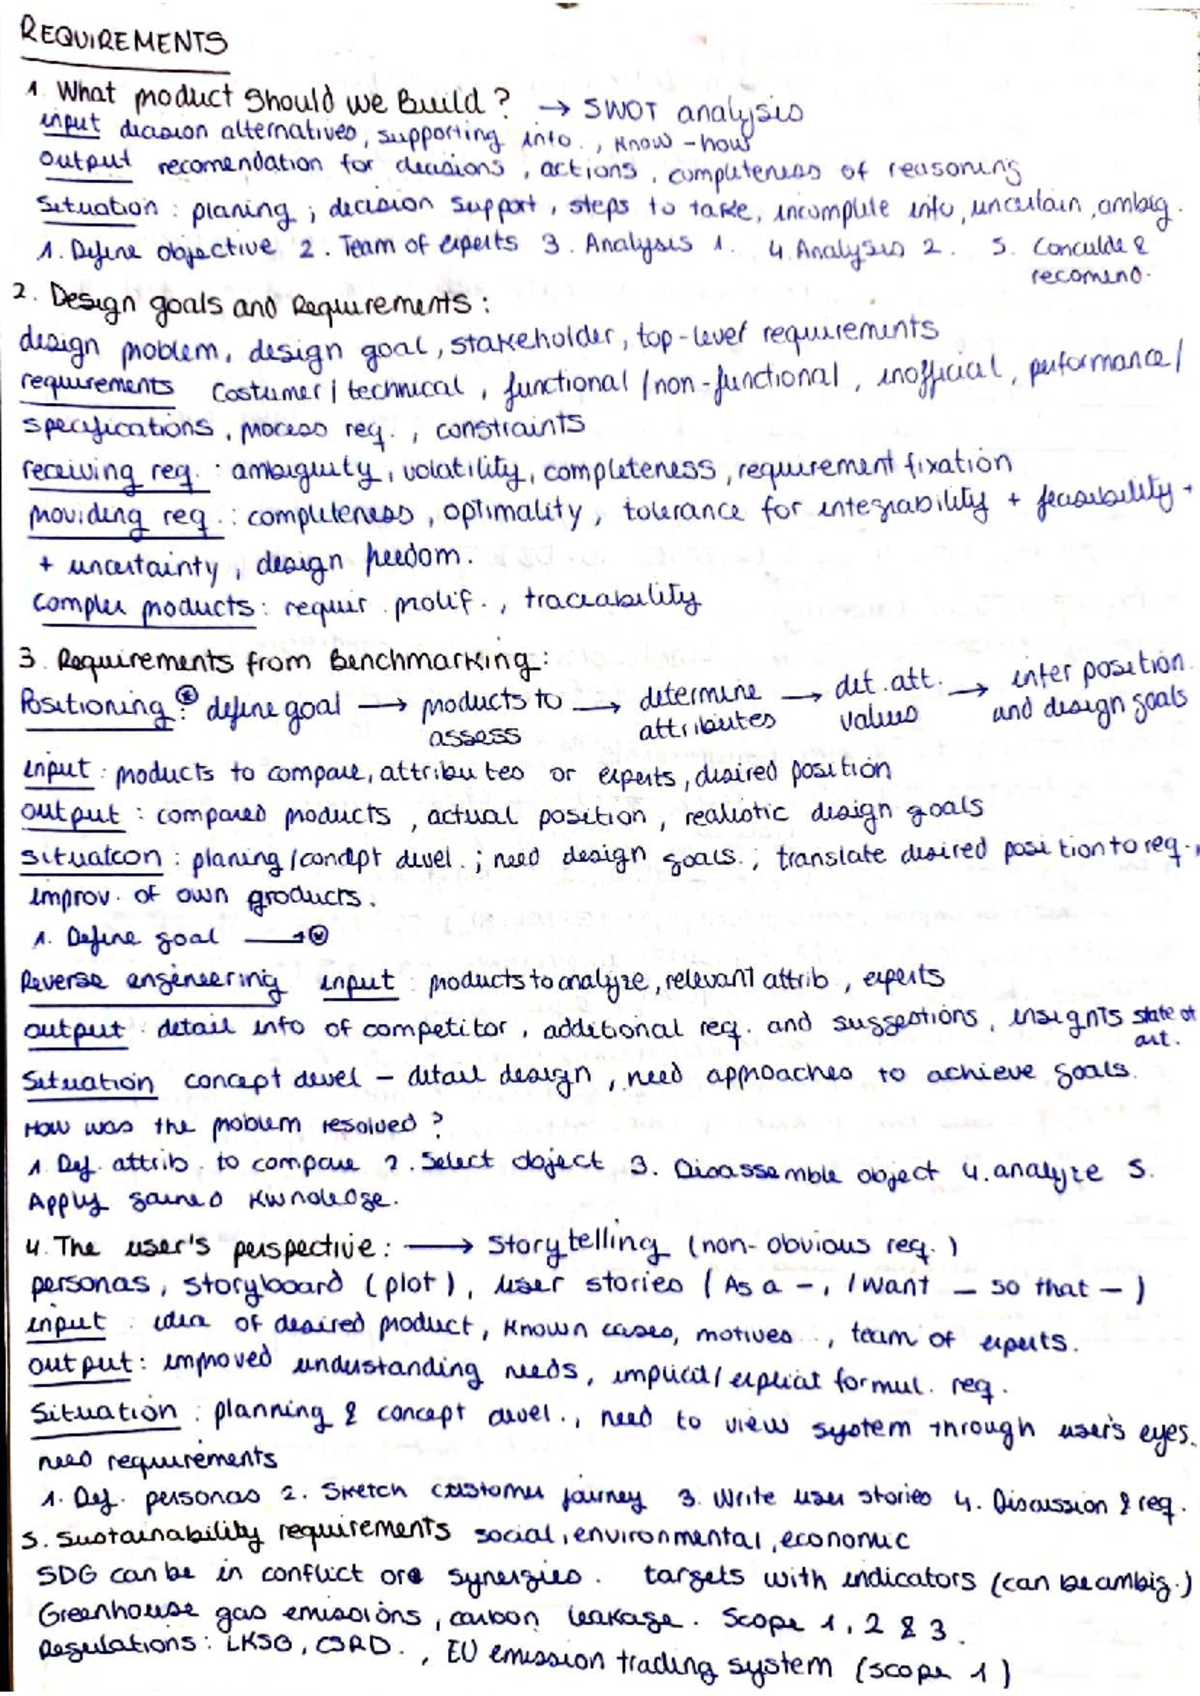 REQUIREMENTS
1. What product should we Build? → SWOT analysis
input decision alternatives, supporting info., know-how
output recomendation for decisions, actions, completeness of reasoning
Situation: planing; decision support, steps to take, incomplete info, uncertain, ambig.
1. Define objective 2. Team of experts 3. Analysis 1. 4. Analysis 2. 5. Conculde &
recomend.
2. Design goals and Requirements:
design problem, design goal, stakeholder, top-level requirements
requirements Costumer/technical, functional/non-functional, inofficial, performance/
specifications, process req., constraints
receiving req.: ambiguity, volatility, completeness, requirement fixation
providing req.: completeness, optimality, tolerance for integrability + feasibility +
+ uncertainty, design freedom.
Complex products: requir. prolif., traceability
3. Requirements from Benchmarking:
Positioning: define goal → products to → determine → det. att. → infer position
assess attributes values and design goals
input: products to compare, attributes or experts, desired position
output: compared products, actual position, realistic design goals
situation: planing/concept devel.; need design goals.; translate desired position to req.,
improv. of own products.
1. Define goal →
Reverse engineering input: products to analyze, relevant attrib, experts
output: detail info of competitor, additional req. and suggestions, insights state of
art.
Situation concept devel – detail design, need approaches to achieve goals.
How was the problem resolved?
1. Def. attrib. to compare 2. Select object 3. Disassemble object 4. analyze 5.
Apply gained kwnoledge.
4. The user's perspective: → Storytelling (non-obvious req.)
personas, storyboard (plot), user stories (As a –, I want – so that –)
input: idea of desired product, known cases, motives.., team of experts.
output: improved understanding needs, implicit/explicit formul. req.
Situation: planning & concept devel., need to view system through user's eyes.
need requirements
1. Def. personas 2. Sketch customer journey 3. Write user stories 4. Discussion & req.
5. Sustainability requirements social, environmental, economic
SDG can be in conflict ore synergies. targets with indicators (can be ambig.)
Greenhouse gas emissions, carbon leakage. Scope 1, 2 & 3.
Regulations: LKSG, CSRD., EU emission trading system (scope 1)